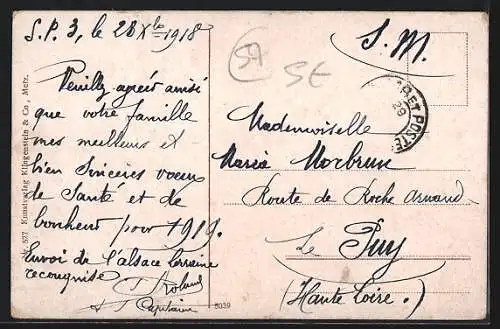 S.P. 3, le 28 Xbre 1918
Veuillez agréer ainsi
que votre famille
mes meilleurs et
bien sincères voeux
de Santé et de
bonheur pour 1919.
Envoi de l'alsace lorraine
reconquise
Capitaine
Nr. 577 Kunstverlag Klingenstein & Co, Metz.
5039
59
SE
S. M.
ET POSTE
29
Mademoiselle
Maria Morbrun
Route de Roche Arnaud
Le Puy
(Haute Loire.)